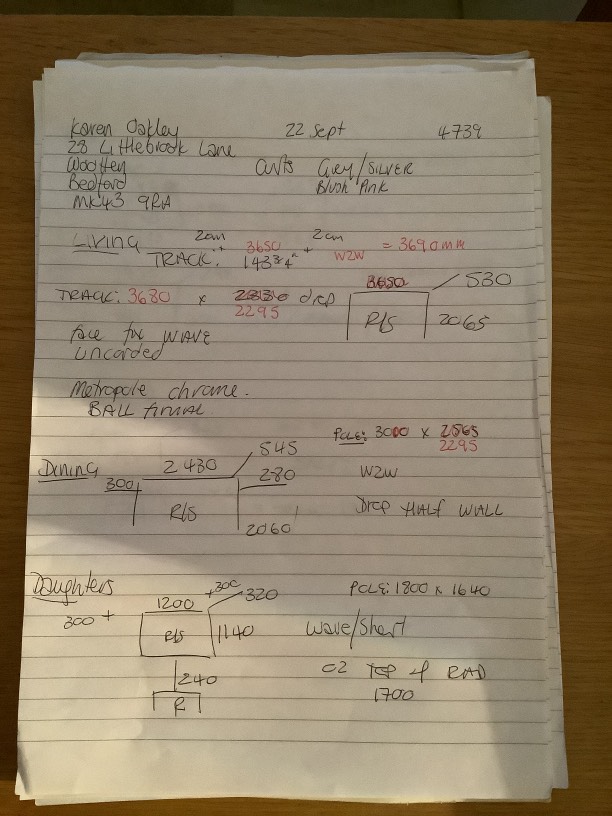 Karen Oakley 22 Sept 4739
28 Littlebrook Lane
Wootten Grey/SILVER
Bedford Blush Pink
MK43 9RA
Living 2cm + 3650 + 2cm W2W = 3690mm
TRACK: 143 3/4"
TRACK: 3680 x 2295 drop
3650 530
R/S 2065
for WAVE
uncorded
Metropole chrome.
BALL finial
POLE: 3000 x 2565
2295
Dining 2430 545
300 280 W2W
R/S Drop HALF WALL
2060
Daughters +300 POLE: 1800 x 1640
300 + 1200 320
R/S 1140 Wave/Short
240 TOP of RAD
R 1700